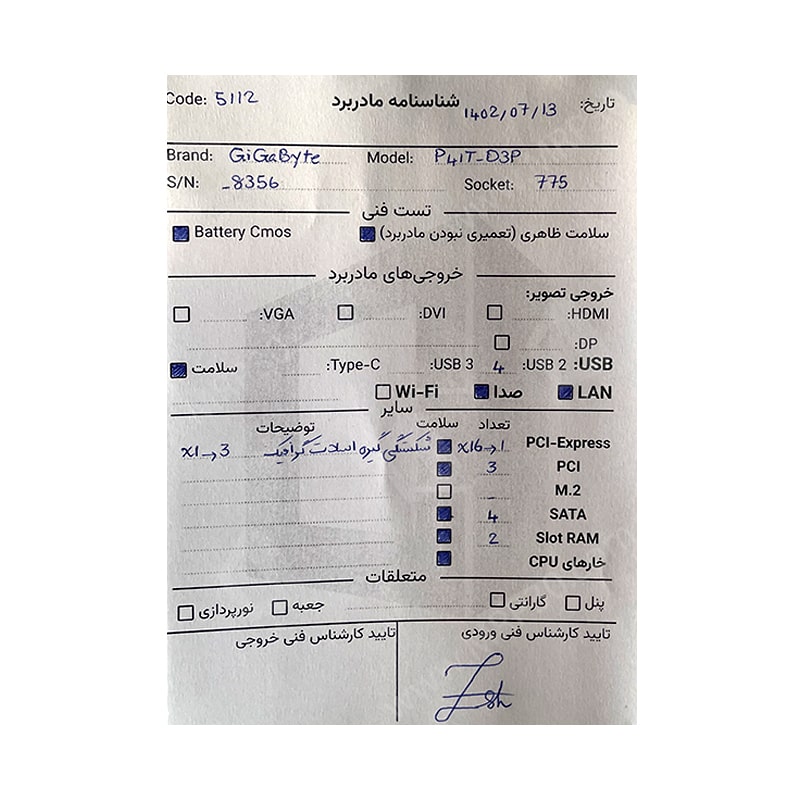 Code: 5112 شناسنامه مادربرد تاریخ: 1402/07/13
Brand: GiGaByte Model: P41T-D3P
S/N: -8356 Socket: 775
تست فنی
سلامت ظاهری (تعمیری نبودن مادربرد) Battery Cmos
خروجی‌های مادربرد
خروجی تصویر:
HDMI: DVI: VGA:
DP:
USB: USB 2: 4 USB 3: Type-C: سلامت
LAN صدا Wi-Fi
سایر
تعداد سلامت توضیحات
PCI-Express x16→1 شکستگی گیره اسلات گرافیک x1→3
PCI 3
M.2 -
SATA 4
Slot RAM 2
خارهای CPU
متعلقات
پنل گارانتی جعبه نورپردازی
تایید کارشناس فنی ورودی تایید کارشناس فنی خروجی